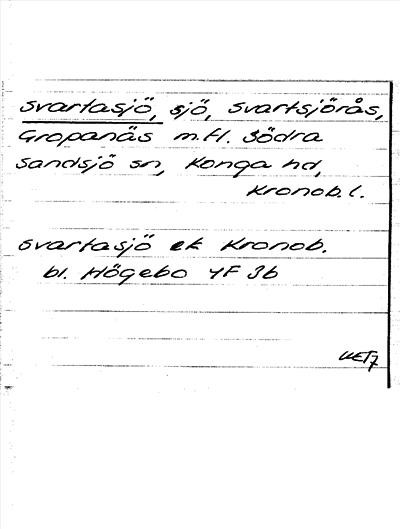 Svartasjö, sjö, Svartsjörås,
Gropanäs m.fl. Södra
Sandsjö sn, Konga hd,
Kronob.l.
Svartasjö ek Kronob.
bl. Högebo 4F 3b